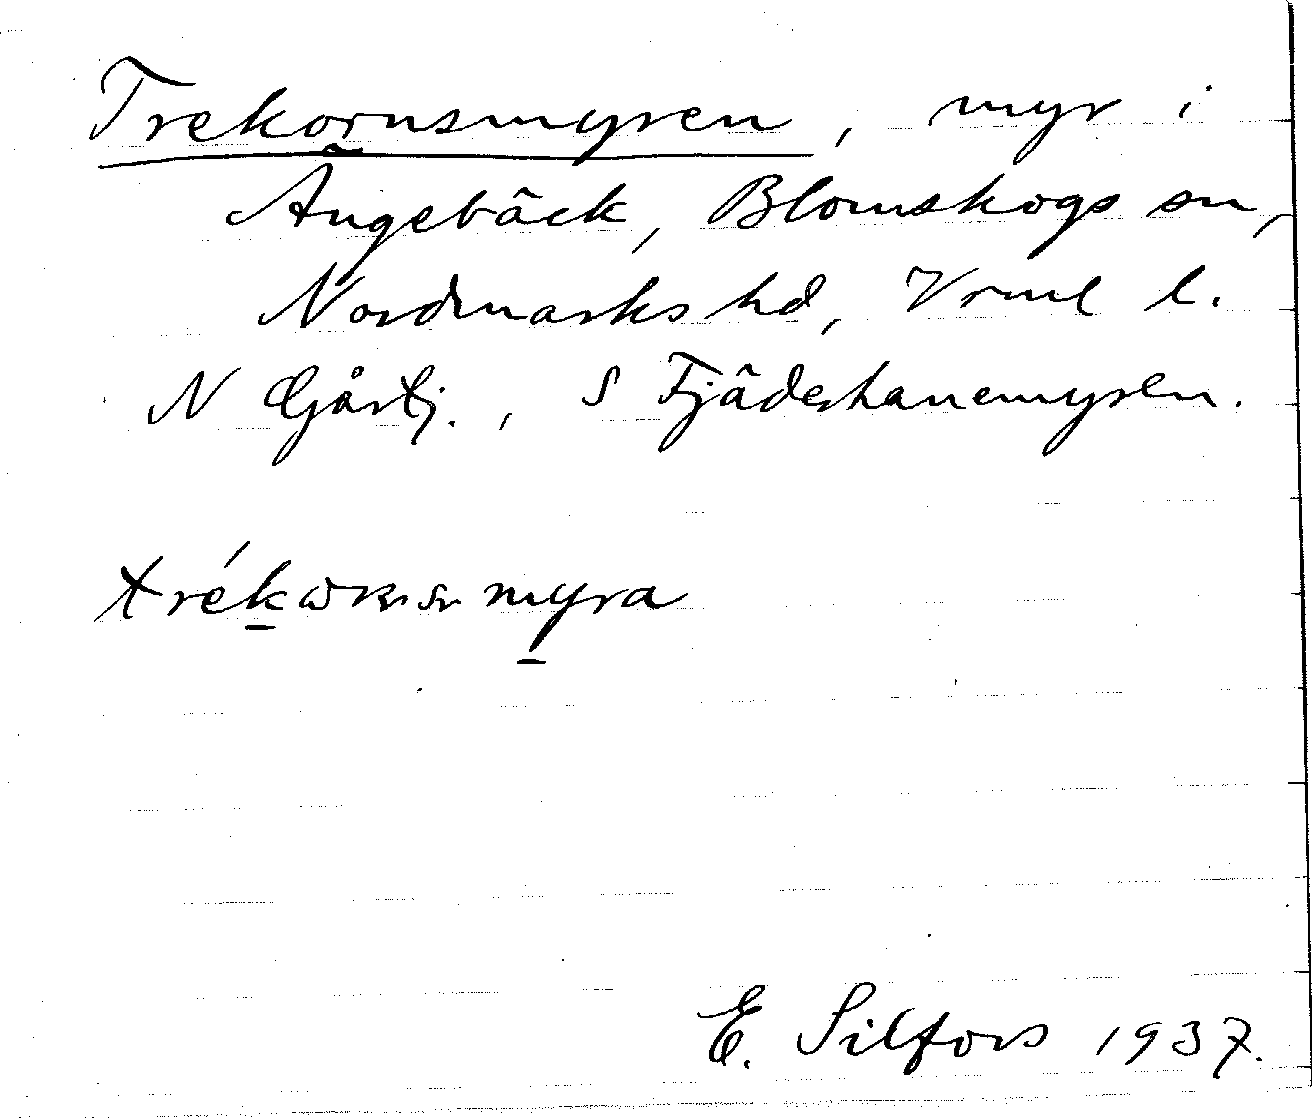 Trekornsmyren, myr i
Ängebäck, Blomskogs sn,
Nordmarks hd, Vrml l.
N Gårtj., S Fjäderhanemyren.
trékɷrnsmyra
E. Silfors 1937.